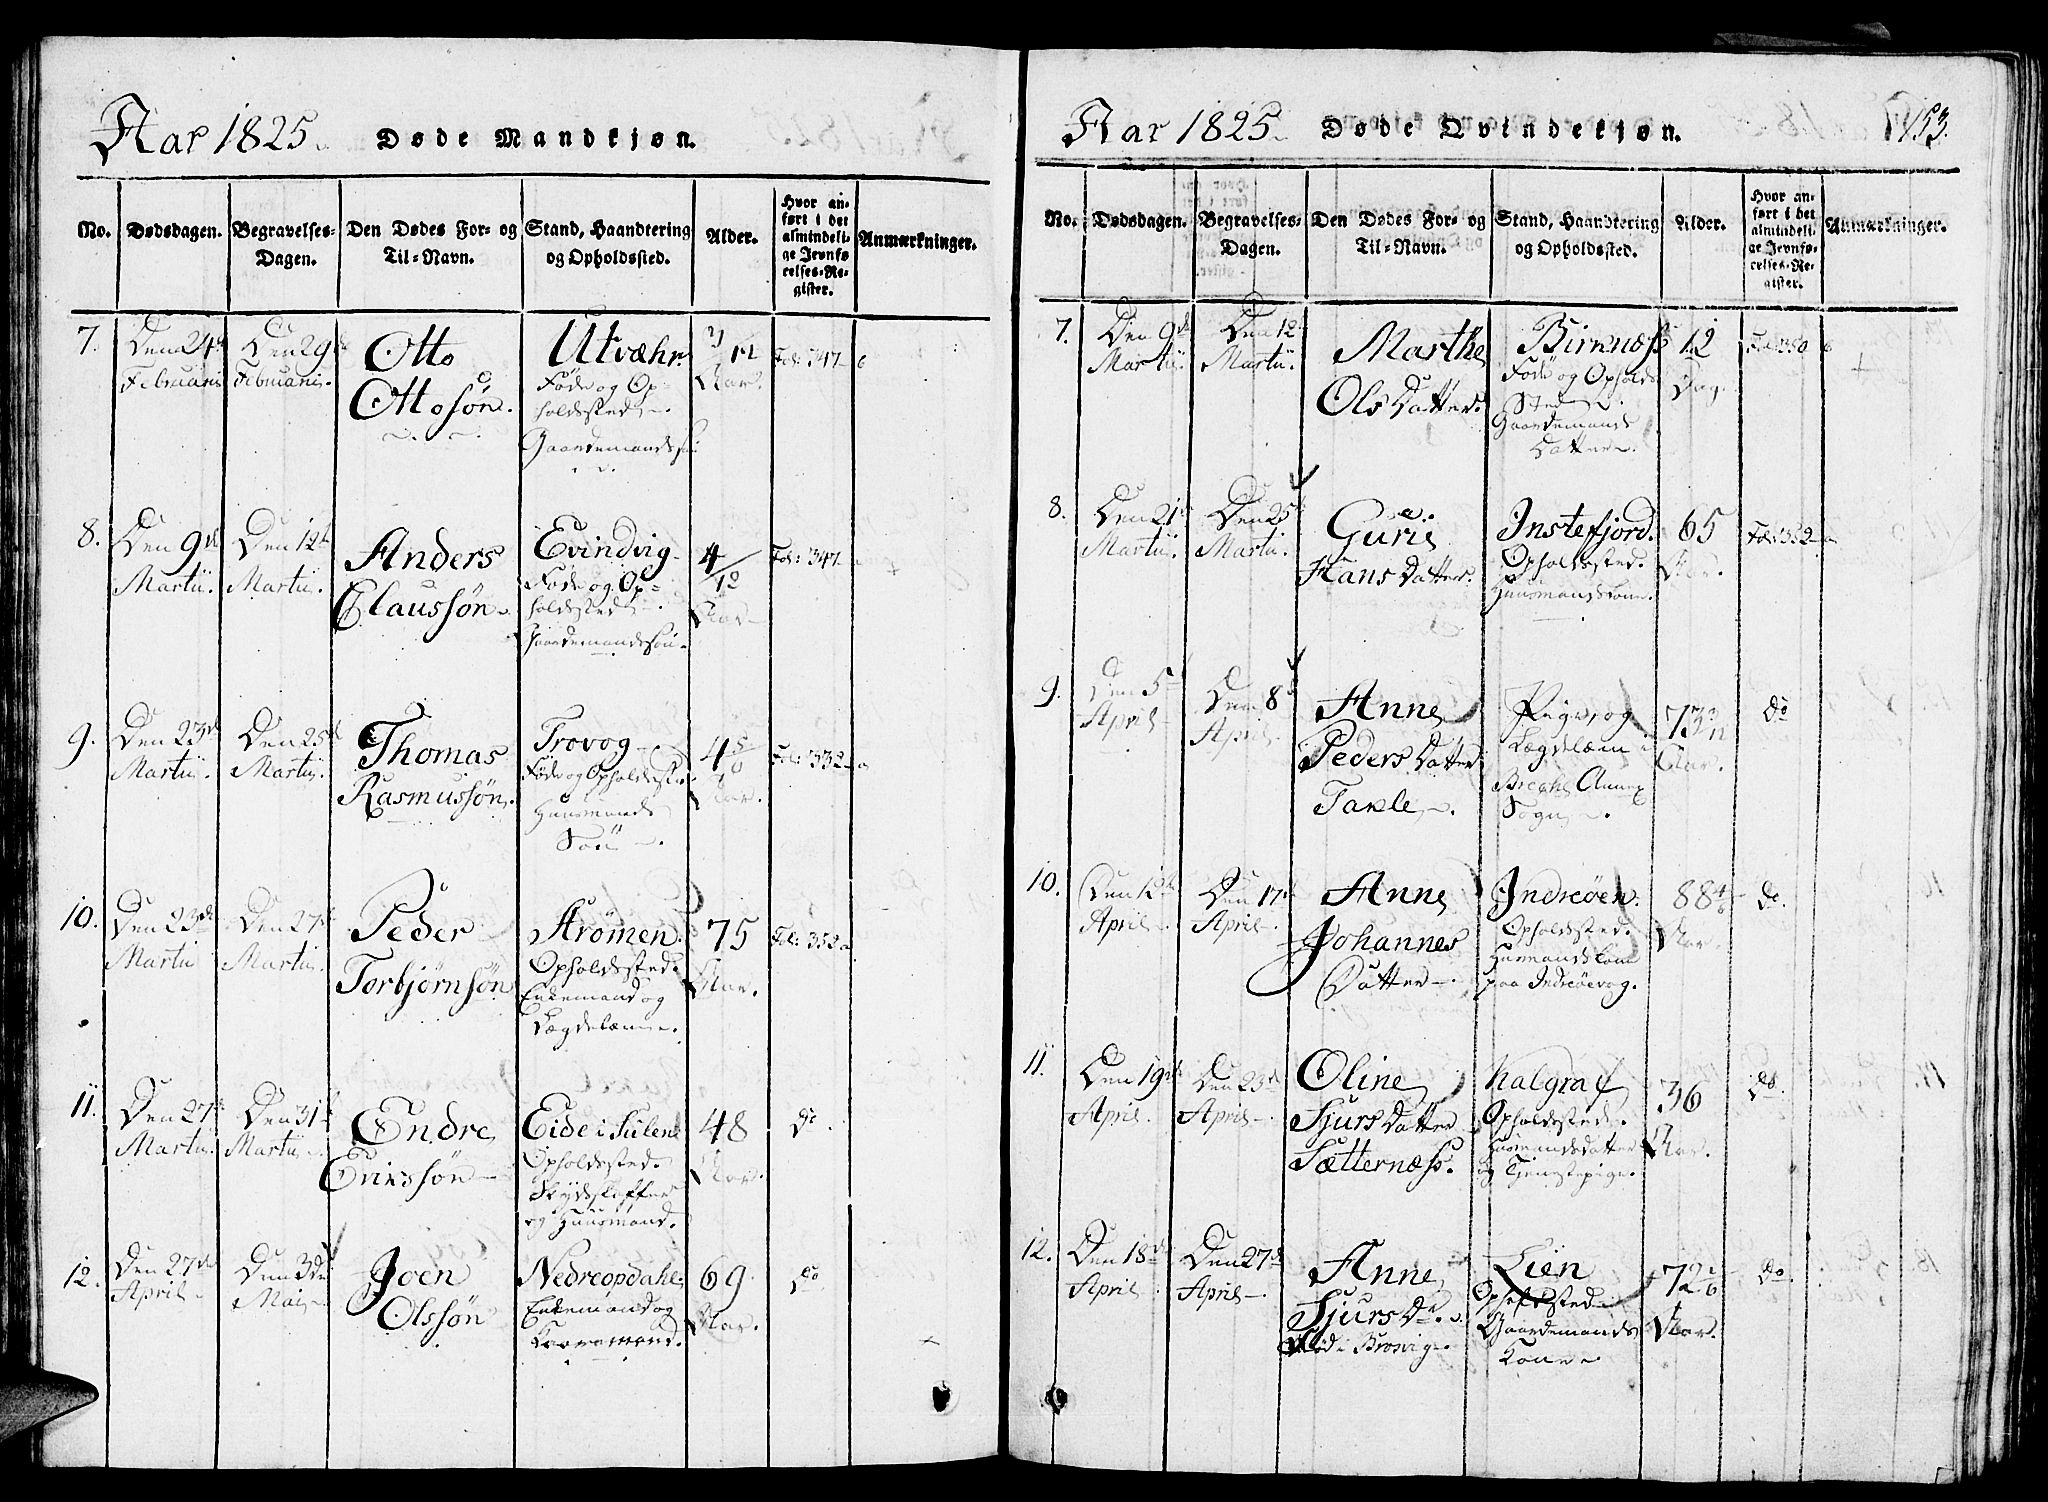 Aar 1825. Døde Mandkjøn.
No. Dødsdagen. Begravelses-Dagen. Den Dødes For- og Til-Navn. Stand, Haandtering og Opholdssted. Alder. Hvor anført i det almindelige Jevnførelses-Register. Anmærkninger.
7.
Den 24de
Februarii
Den 29de
Februarii.
Otto
Ottosøn.
Utvæhr
Føde og Op-
holdssted.
Gaardemandssøn
Aar.
Fol: 347
8.
Den 9de
Martii.
Den 12te
Martii.
Anders
Claussøn.
Evindvig
Føde og Op-
holdssted.
Gaardemandssøn.
4/12
Aar
Fol: 347
9.
Den 23de
Martii.
Den 25de
Martii.
Thomas
Rasmussøn.
Trovog
Føde og Opholdsste.
Huusmands
Søn.
Aar.
Fol: 332
10.
Den 23de
Martii
Den 27de
Martii.
Peder
Torbjørnsøn
Opholdssted.
Enkemand og
Lægdelæm.
75
Aar.
11.
Den 27de
Martii.
Den 31te
Martii.
Endre
Erikssøn
Eide i Sulene
Opholdssted.
Skydsskaffer
og Huusmand.
48
Aar.
do.
12.
Den 27de
April
Den 3die
Mai
Joen
Olssøn
Nedreopdahl
Enkemand og
Kaaremand.
69
Aar.
do
Aar 1825. Døde Qvindekjøn. 153.
No. Dødsdagen. Begravelses-Dagen. Den Dødes For- og Til-Navn. Stand, Haandtering og Opholdssted. Alder. Hvor anført i det almindelige Jevnførelses-Register. Anmærkninger.
7.
Den 9de
Martii.
Den 12te
Martii.
Marthe
Ols Datter.
Birknæss
Føde og Opholds
Sted.
Gaardemands
Datter.
12
Dag.
Fol: 350
8.
Den 21de
Martii.
Den 25de
Martii.
Gurie
Hans Datter.
Instefjord.
Opholdssted.
Huusmandskone.
65
Aar.
9.
Den 5te
April
Den 8de
April
Anne
Peders Datter
Takle.
Pige, og
Lægdelæm i
Brekke Annex
Sogn.
Aar.
do
10.
Den 12te
April
Den 17de
April
Anne
Johannes
Datter.
Indreøen.
Opholdssted.
Huusmandskone
paa Indreøevog.
Aar.
do.
11.
Den 19de
April.
Den 23de
April
Oline
Sjurs Datter
Sætternæss.
Halgraf
Opholdssted.
Huusmandsdatter
og Tjenestepige.
36
Aar.
do.
12.
Den 18de
April
Den 27de
April
Anne
Sjurs Dr.
Død i Brosvig.
Lien
Opholdssted
Gaardemands
Kone
Aar.
do.